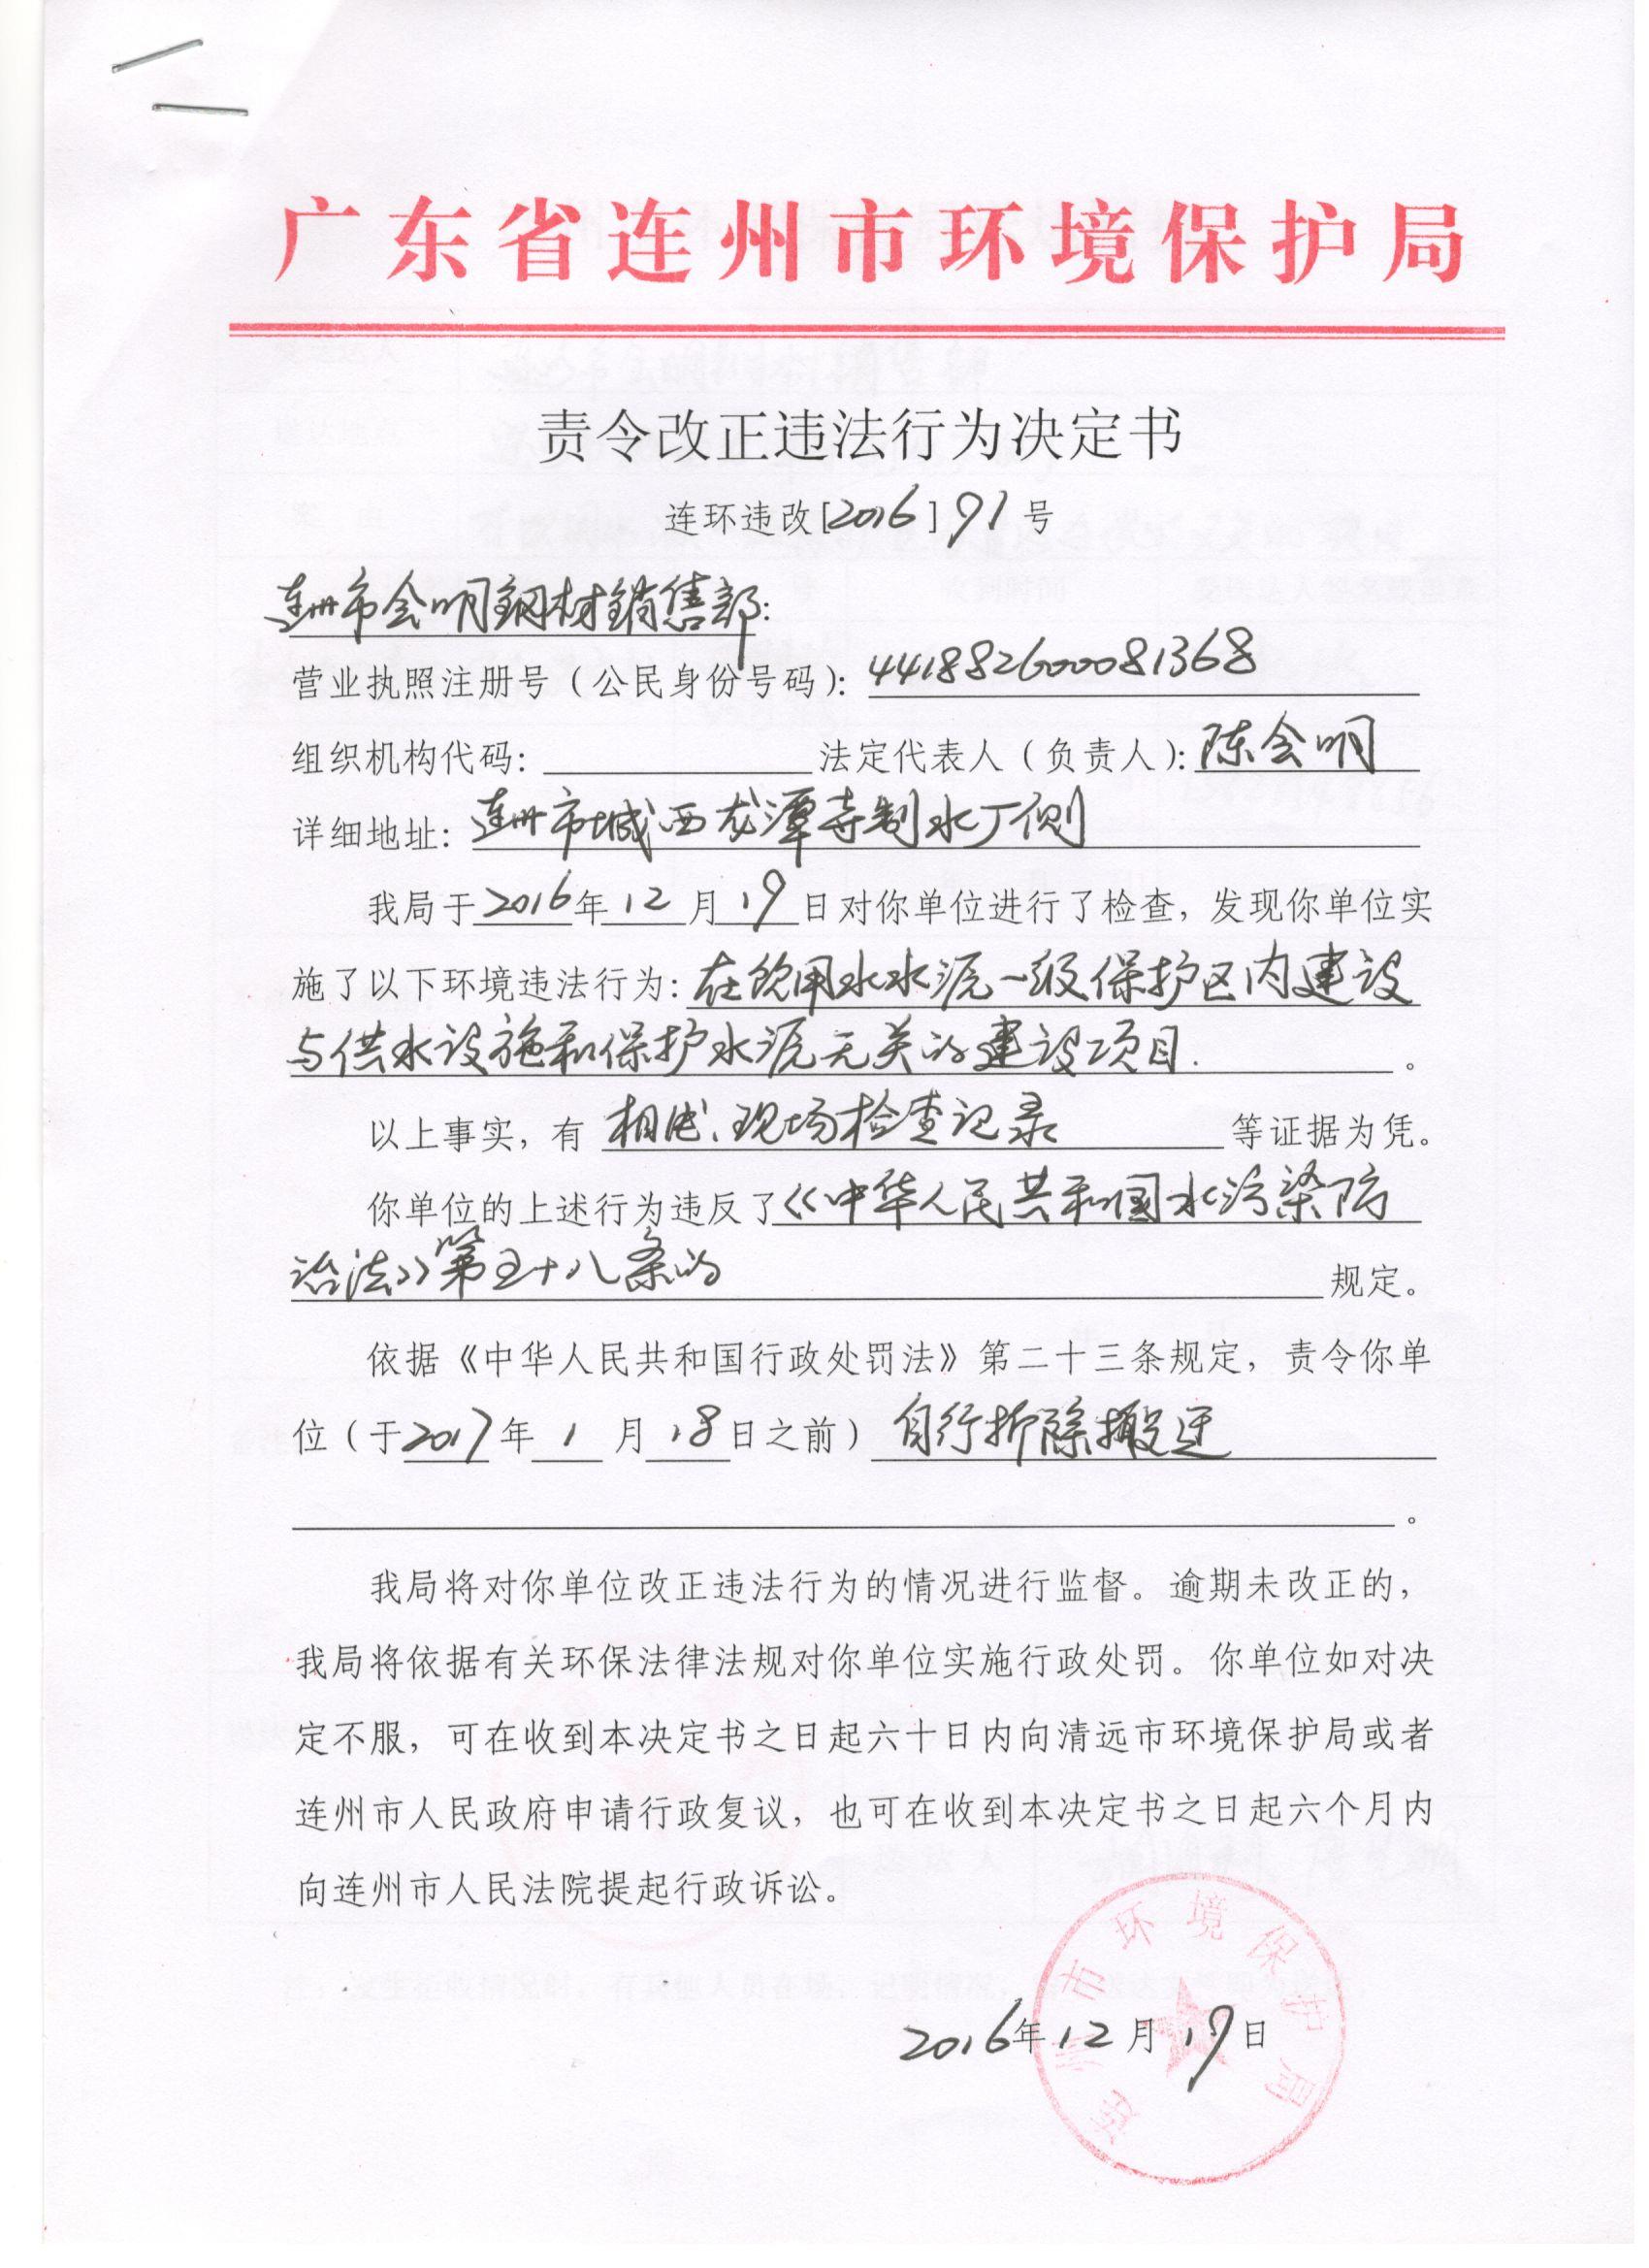 广东省连州市环境保护局
责令改正违法行为决定书
连环违改[2016]91号
连州市会明钢材销售部:
营业执照注册号（公民身份号码）: 441882600081368
组织机构代码: 法定代表人（负责人）: 陈会明
详细地址: 连州市城西龙潭寺制水厂侧
我局于2016年12月19日对你单位进行了检查，发现你单位实
施了以下环境违法行为: 在饮用水水源一级保护区内建设
与供水设施和保护水源无关的建设项目. 。
以上事实，有 相片、现场检查记录 等证据为凭。
你单位的上述行为违反了《中华人民共和国水污染防
治法》第五十八条的 规定。
依据《中华人民共和国行政处罚法》第二十三条规定，责令你单
位（于2017年1月18日之前）自行拆除搬迁
。
我局将对你单位改正违法行为的情况进行监督。逾期未改正的，
我局将依据有关环保法律法规对你单位实施行政处罚。你单位如对决
定不服，可在收到本决定书之日起六十日内向清远市环境保护局或者
连州市人民政府申请行政复议，也可在收到本决定书之日起六个月内
向连州市人民法院提起行政诉讼。
连州市环境保护局
2016年12月19日